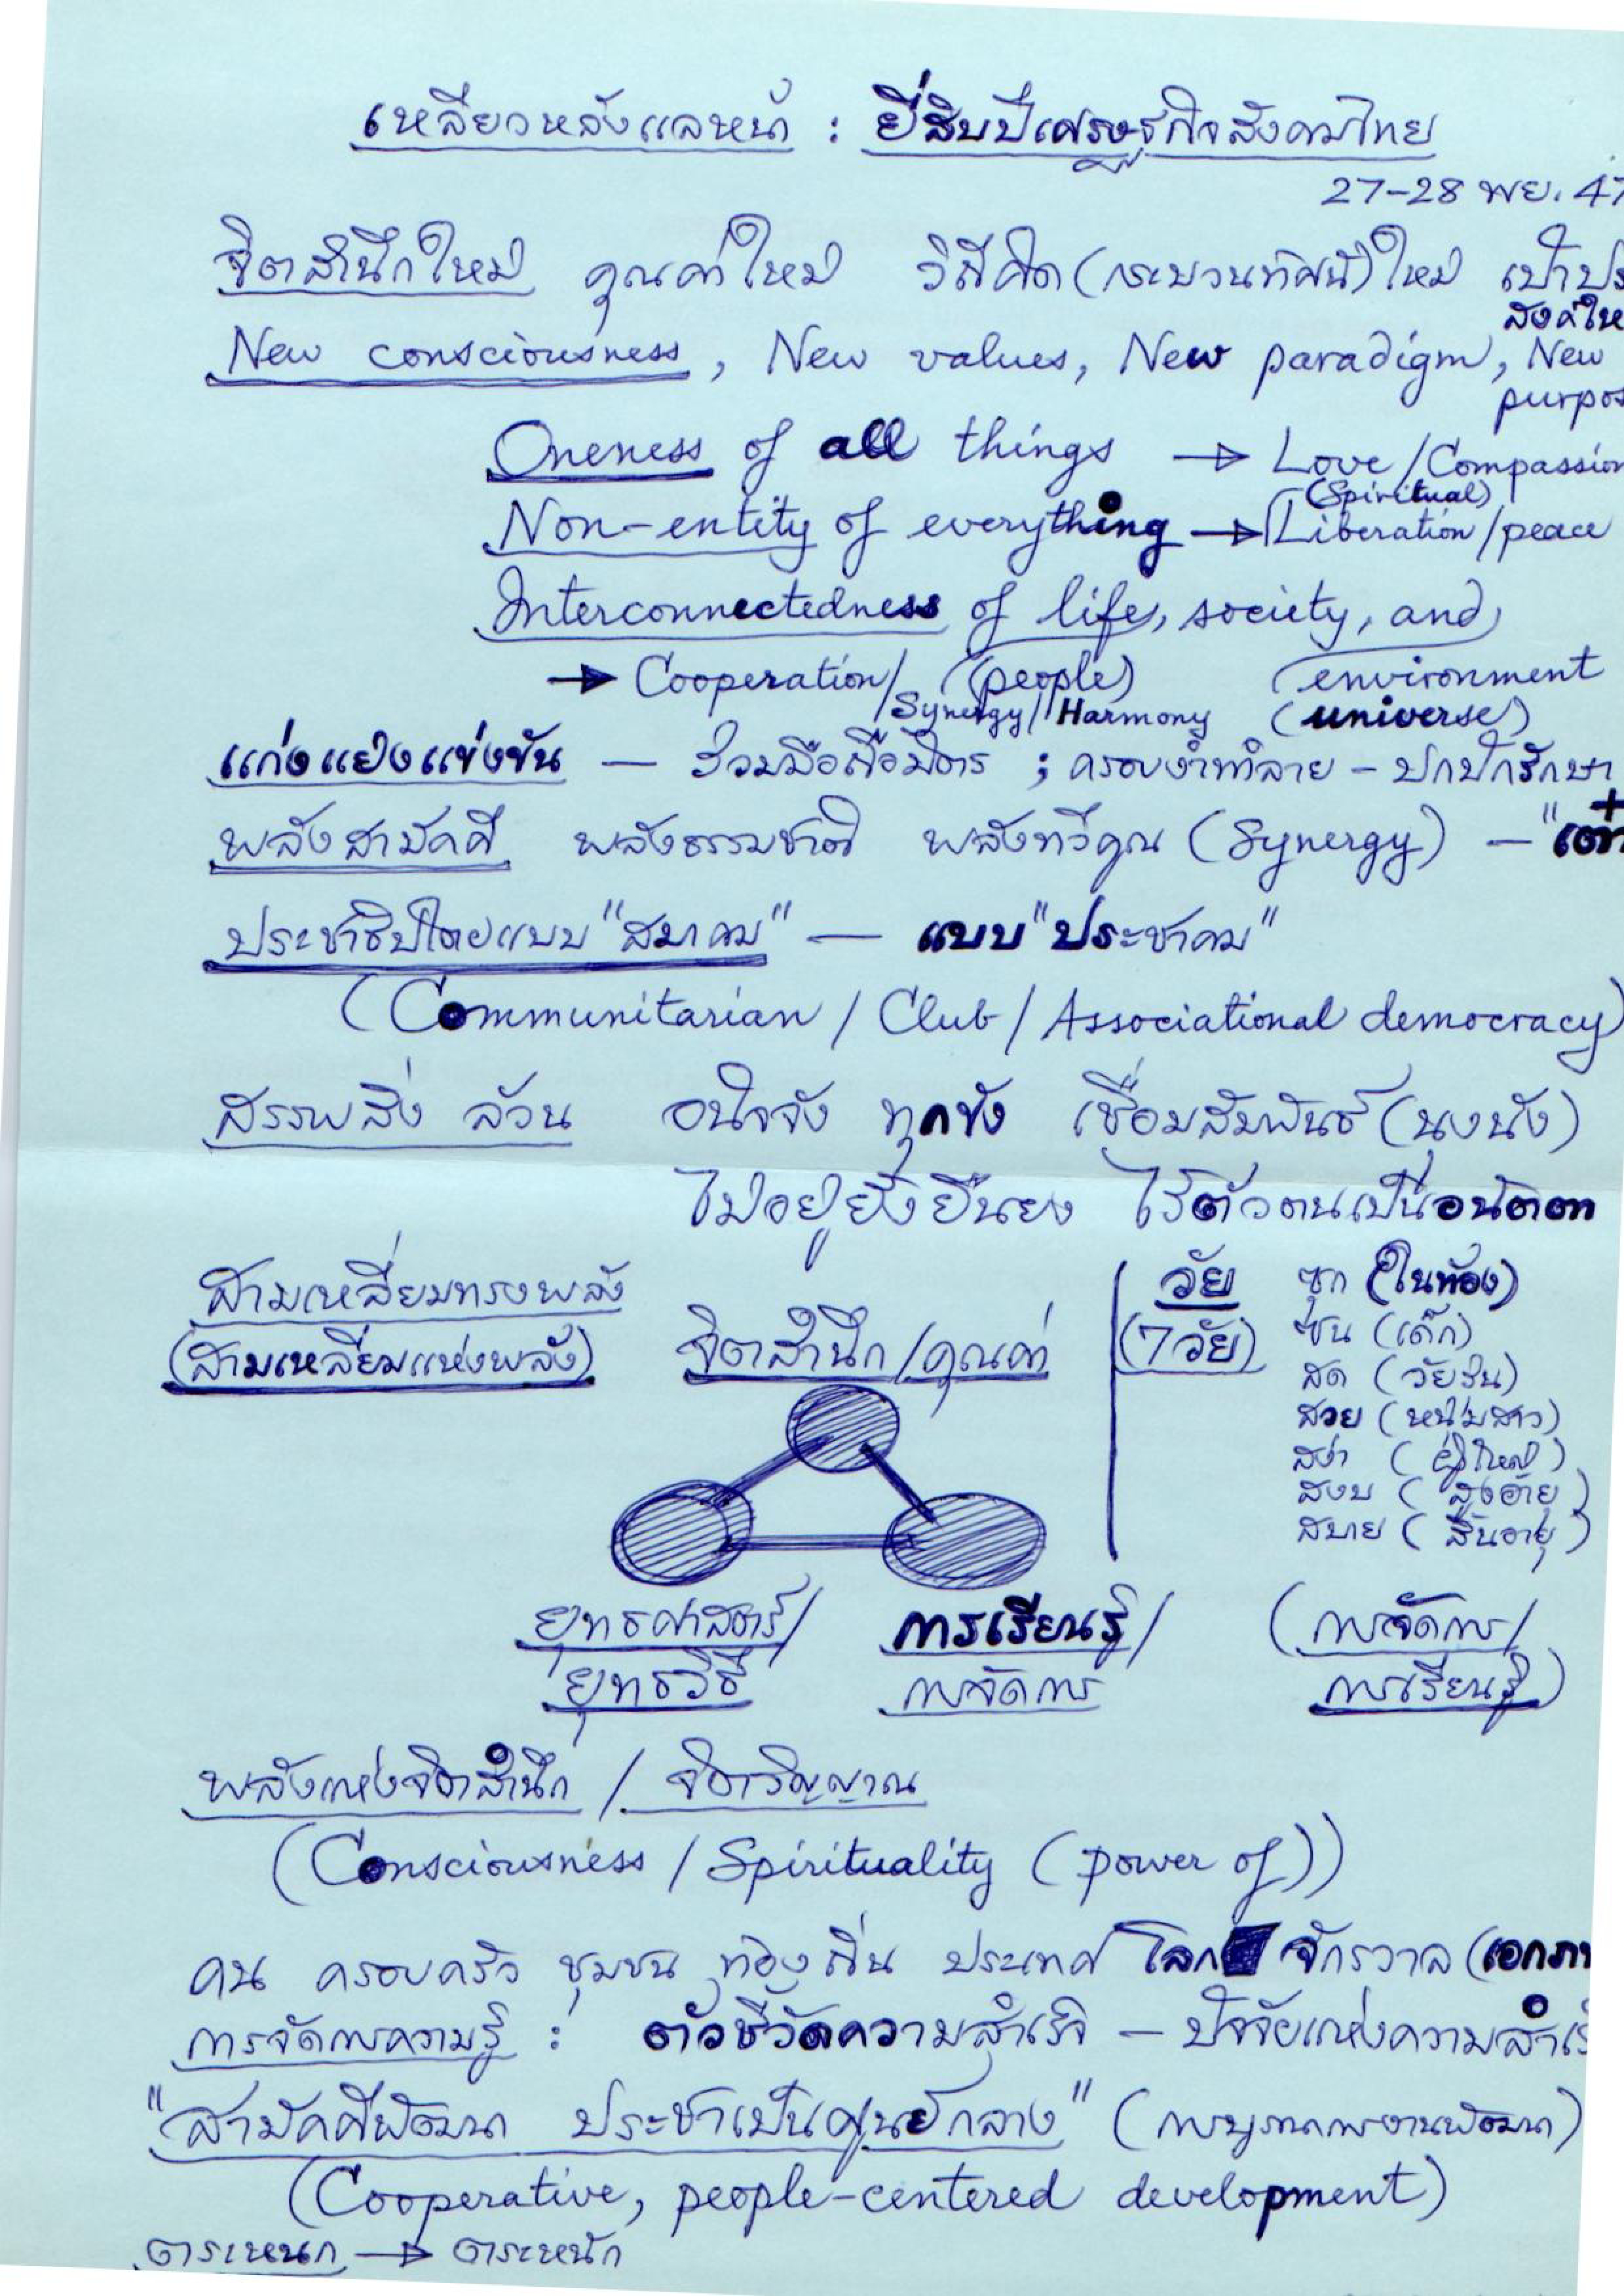 เหลียวหลังแลหน้า : ยี่สิบปีเศรษฐกิจสังคมไทย
27-28 พย. 47
จิตสำนึกใหม่ คุณค่าใหม่ วิธีคิด (กระบวนทัศน์) ใหม่ เป้าประ
สงค์ให
New consciousness, New values, New paradigm, New
purpos
Oneness of all things → Love/Compassion
(Spiritual)
Non-entity of everything → Liberation/peace
Interconnectedness of life, society, and
→ Cooperation/ (people) environment
Synergy/Harmony (universe)
แก่งแย่งแข่งขัน — ร่วมมือถือมิตร ; ครอบงำทำลาย - ปกปักรักษา
พลังสามัคคี พลังธรรมชาติ พลังทวีคูณ (Synergy) — "เต๋า
ประชาธิปไตยแบบ "สมาคม" — แบบ "ประชาคม"
(Communitarian / Club / Associational democracy)
สรรพสิ่ง ล้วน อนิจจัง ทุกขัง เชื่อมสัมพันธ์ (นุงนัง)
ไม่อยู่ยั้งยืนยง ไร้ตัวตนเป็นอนัตตา
สามเหลี่ยมทรงพลัง
(สามเหลี่ยมแห่งพลัง) จิตสำนึก/คุณค่า
วัย ซุก (ในท้อง)
(7 วัย) ซน (เด็ก)
สด (วัยรุ่น)
สวย (หนุ่มสาว)
สง่า (ผู้ใหญ่)
สงบ (สูงอายุ)
สบาย (สิ้นอายุ)
ยุทธศาสตร์/ การเรียนรู้/ (การจัดการ/
ยุทธวิธี การจัดการ การเรียนรู้)
พลังแห่งจิตสำนึก / จิตวิญญาณ
(Consciousness / Spirituality (power of))
คน ครอบครัว ชุมชน ท้องถิ่น ประเทศ โลก จักรวาล (เอกภา
การจัดการความรู้ : ตัวชี้วัดความสำเร็จ — ปัจจัยแห่งความสำเร็
"สามัคคีพัฒนา ประชาเป็นศูนย์กลาง" (การบูรณาการงานพัฒนา)
(Cooperative, people-centered development)
ตระหนก → ตระหนัก